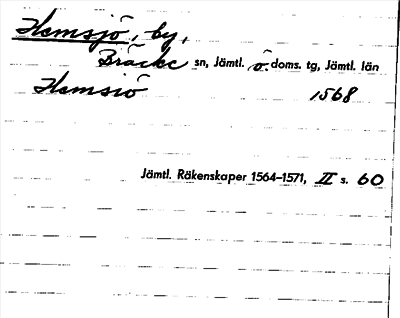 Hemsjö, by,
Bräcke sn, Jämtl. ö. doms. tg, Jämtl. län
Hemsiö 1568
Jämtl. Räkenskaper 1564–1571, II s. 60